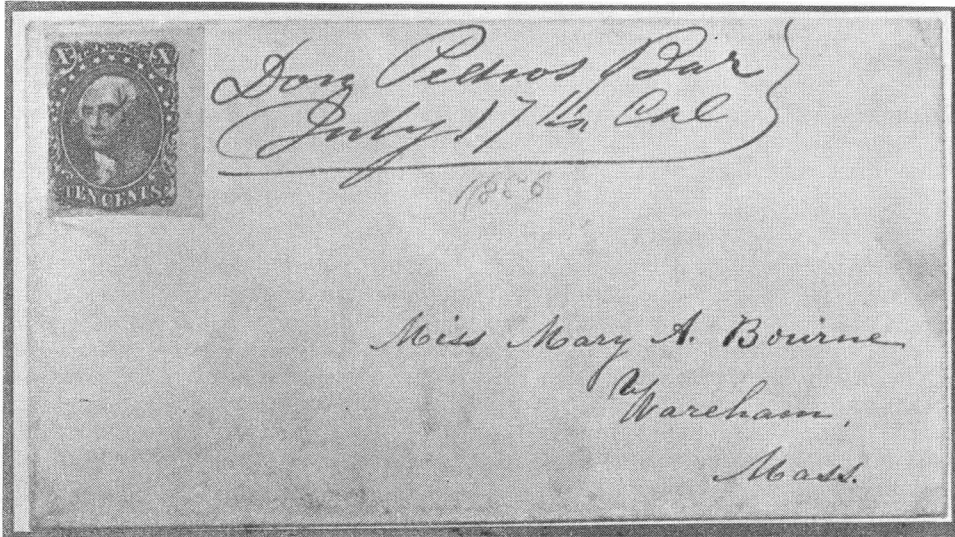 X X
TEN CENTS
Don Pedros Bar
July 17th Cal
1856
Miss Mary A. Bourne
Wareham,
Mass.